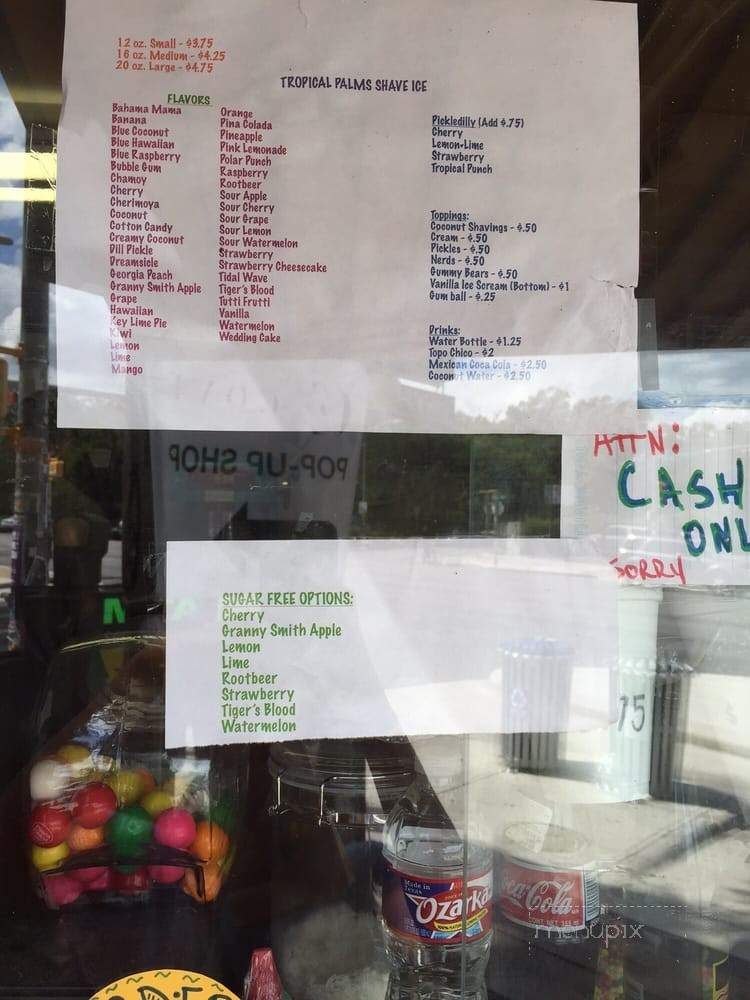 12 oz. Small - $3.75
16 oz. Medium - $4.25
20 oz. Large - $4.75
TROPICAL PALMS SHAVE ICE
FLAVORS
Bahama Mama
Banana
Blue Coconut
Blue Hawaiian
Blue Raspberry
Bubble Gum
Chamoy
Cherry
Cherimoya
Coconut
Cotton Candy
Creamy Coconut
Dill Pickle
Dreamsicle
Georgia Peach
Granny Smith Apple
Grape
Hawaiian
Key Lime Pie
Kiwi
Lemon
Lime
Mango
Orange
Pina Colada
Pineapple
Pink Lemonade
Polar Punch
Raspberry
Rootbeer
Sour Apple
Sour Cherry
Sour Grape
Sour Lemon
Sour Watermelon
Strawberry
Strawberry Cheesecake
Tidal Wave
Tiger's Blood
Tutti Frutti
Vanilla
Watermelon
Wedding Cake
Pickledilly (Add $.75)
Cherry
Lemon-Lime
Strawberry
Tropical Punch
Toppings:
Coconut Shavings - $.50
Cream - $.50
Pickles - $.50
Nerds - $.50
Gummy Bears - $.50
Vanilla Ice Scream (Bottom) - $1
Gum ball - $.25
Drinks:
Water Bottle - $1.25
Topo Chico - $2
Mexican Coca Cola - $2.50
Coconut Water - $2.50
POP-UP SHOP
ATTN:
CASH
ONL
SORRY
SUGAR FREE OPTIONS:
Cherry
Granny Smith Apple
Lemon
Lime
Rootbeer
Strawberry
Tiger's Blood
Watermelon
75
Made in
Texas
Ozarka
Coca-Cola
menupix